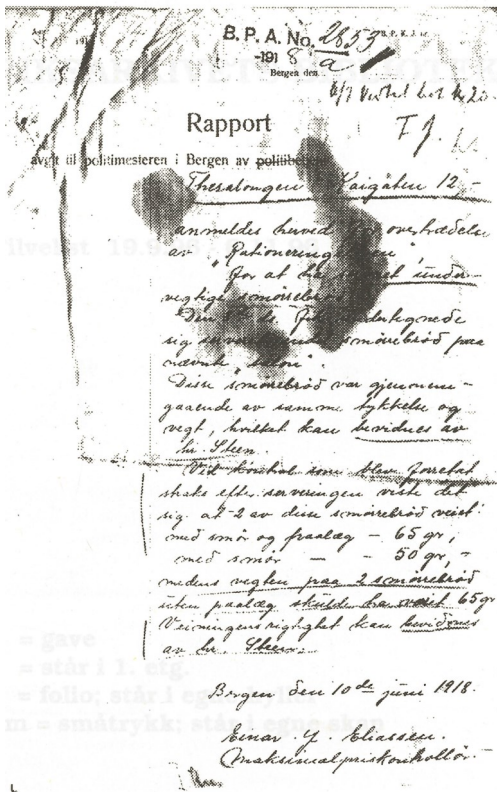 B. P. A. No. 2853
-1918 a
Bergen den
Rapport
avgit til politimesteren i Bergen av politibetj
Thesalongen Kaigaten 12,-
anmeldes herved for overtrædelse
av "Rationeringsloven"
for at ha servert under-
vegtige smörrebröd
Den ds. fik undertegnede
sig servert smörrebröd paa
nævnte "salon".
Disse smörrebröd var gjennem-
gaaende av samme tykkelse og
vegt, hvilket kan bevidnes av
hr. Steen.
Ved kontrol som blev foretat
straks efter serveringen viste det
sig at 2 av disse smörrebröd veiet
med smör og paalæg - 65 gr,
med smör - - 50 gr, -
medens vegten paa 2 smörrebröd
uten paalæg skulde ha veiet 65 gr
Veiningens rigtighet kan bevidnes
av hr. Steen.
Bergen den 10de juni 1918.
Einar J. Eliassen.
Maksimalpriskontrollör.
ilvelist 19.9
= gave
= står i 1. etg.
= folio; står i egne hyller
m = småtrykk; står i egne skap